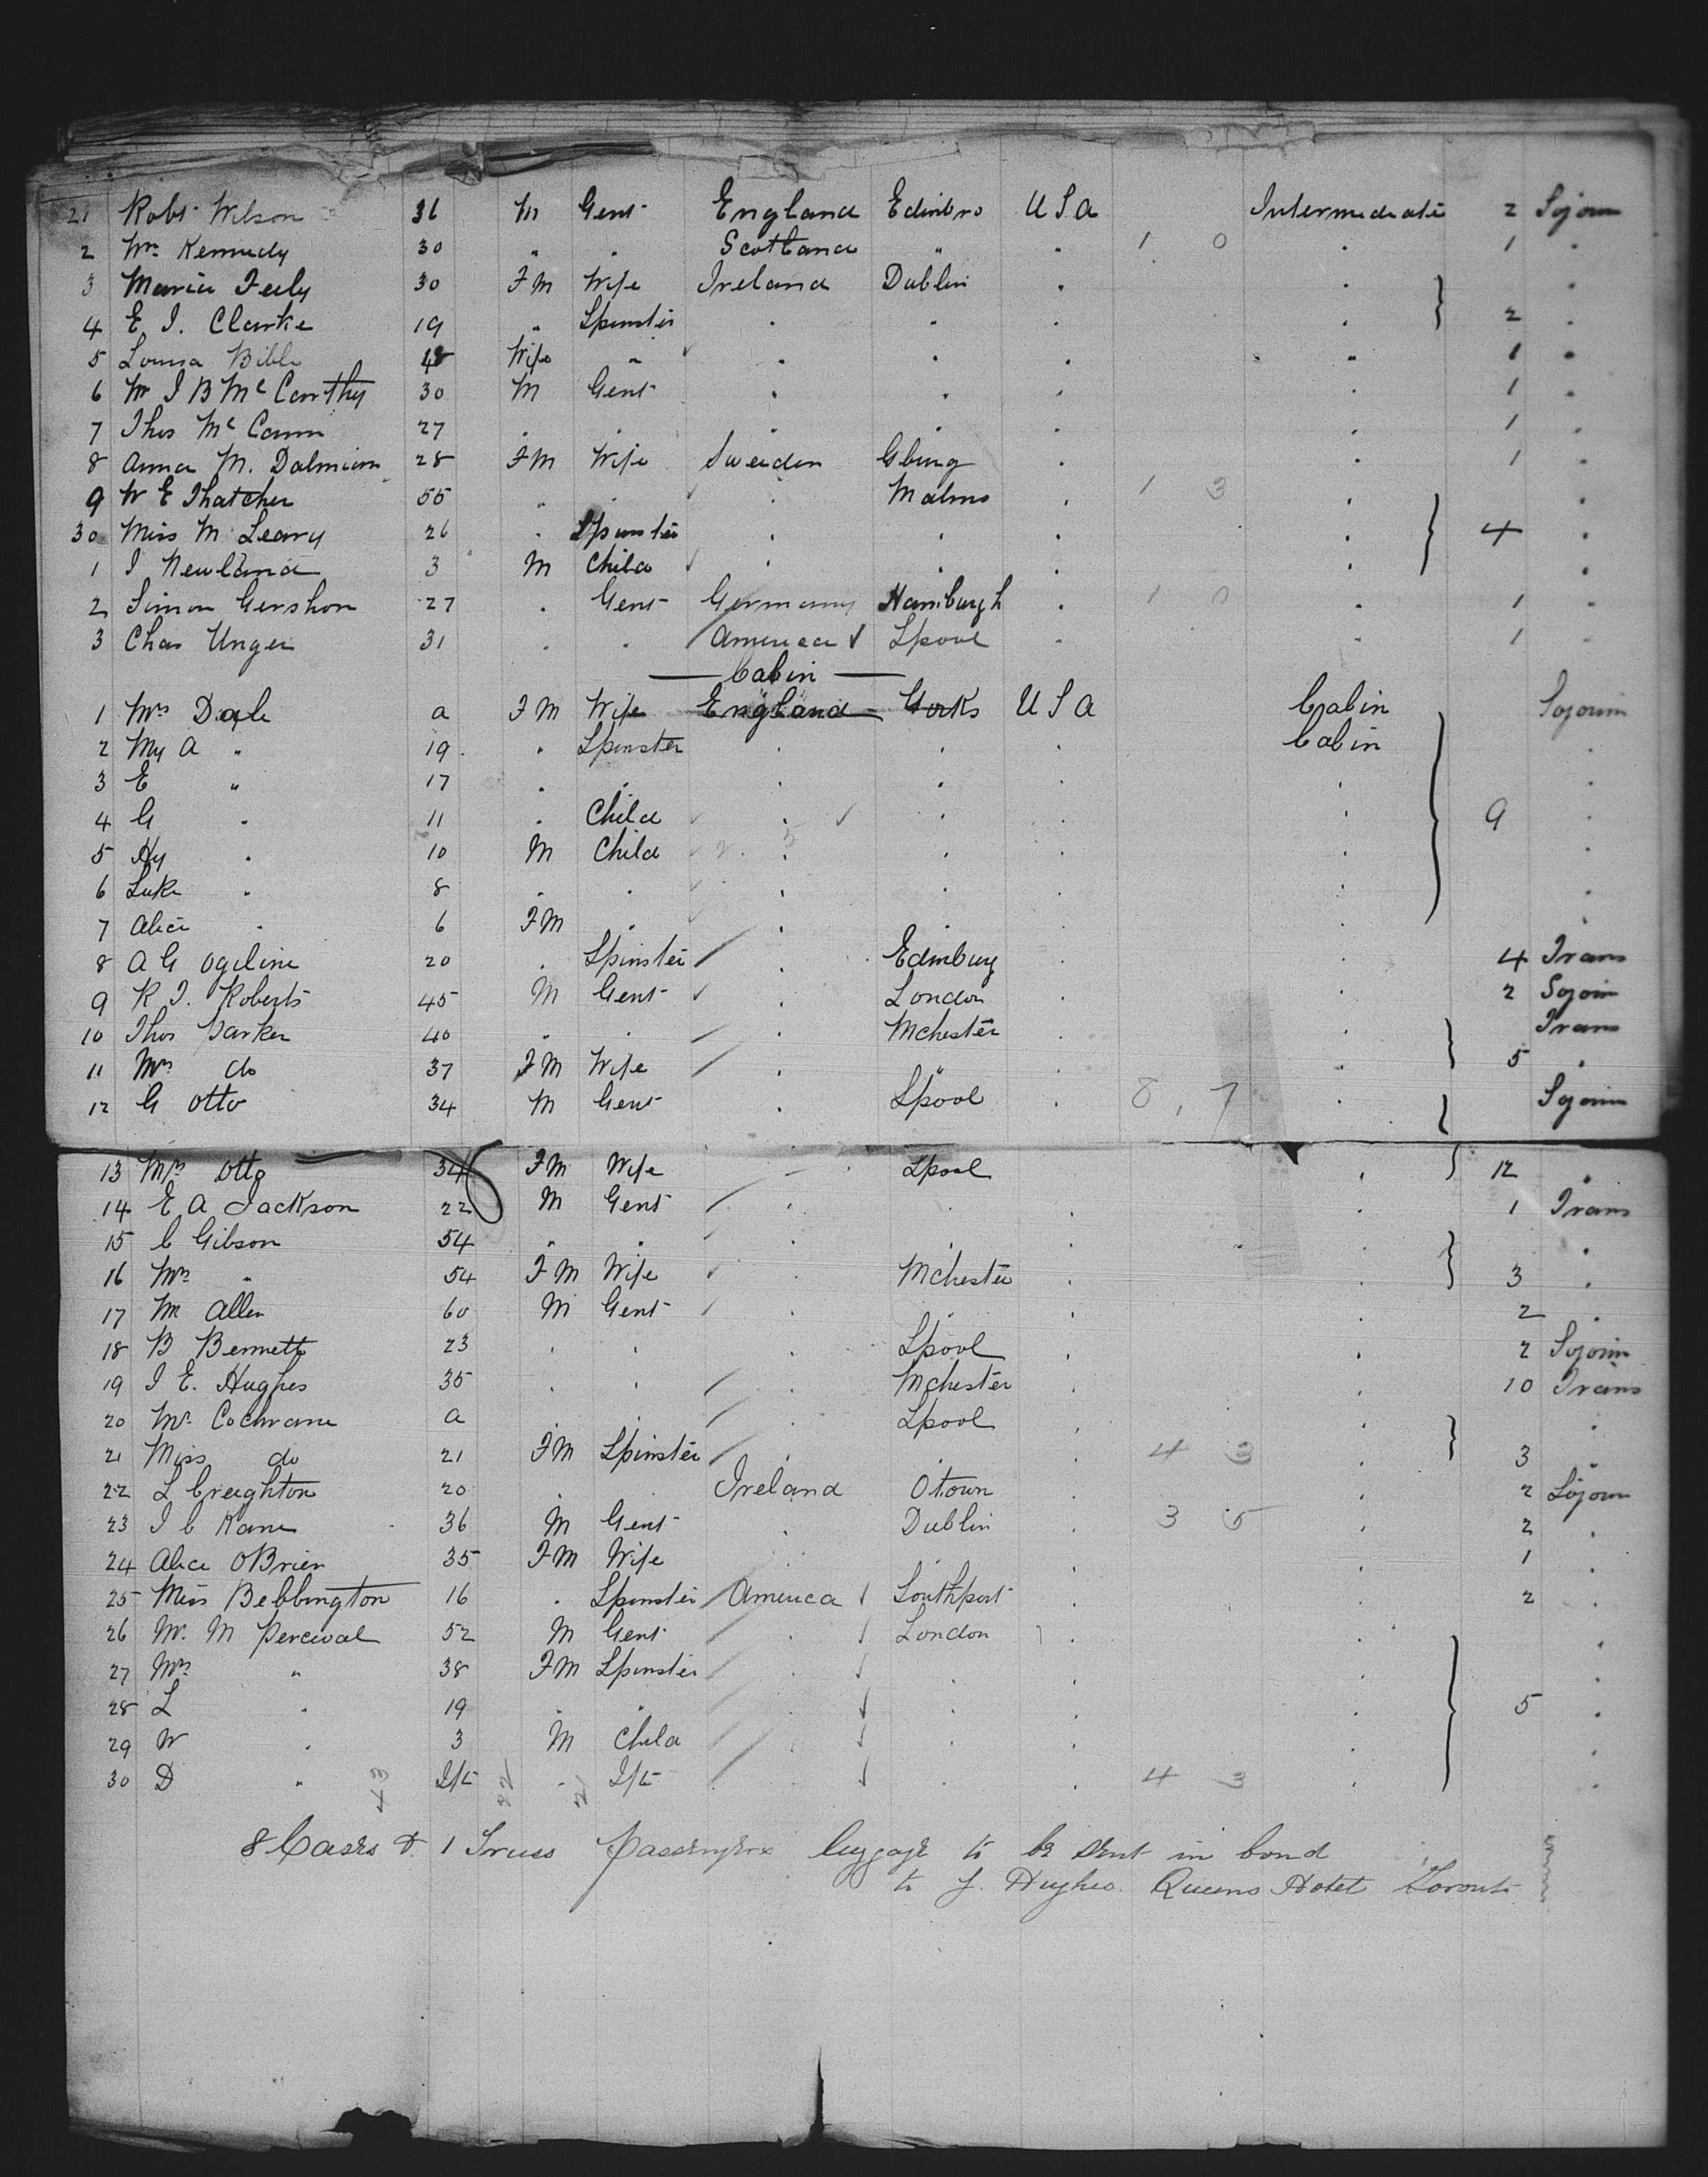 21 Robt Wilson 36 M Gent England Edinbro U S A Intermediate 2 Sojourn
2 Mr Kennedy 30 " " Scotland " " 1 0 " 1 "
3 Maria Feely 30 F M Wife Ireland Dublin " " "
4 E J. Clarke 19 " Spinster " " " " 2 "
5 Louisa Bible 48 Wife " " " " " 1 "
6 Mr J B McCarthy 30 M Gent " " " " 1 "
7 Thos McCann 27 " " " " " " 1 "
8 Anna M. Dalmian 28 F M Wife Sweden Gburg " " 1 "
9 W E Thatcher 55 " " " Malmo " 1 3 " "
30 Miss M Leary 26 " Spinster " " " " 4 "
1 J Newland 3 M Child " " " " "
2 Simon Gershon 27 " Gent Germany Hamburgh " 1 0 " 1 "
3 Chas Unger 31 " " America Lpool " " 1 "
Cabin
1 Mrs Dale a F M Wife England Yorks U S A Cabin Sojourn
2 My A " 19 " Spinster " " " Cabin "
3 E " 17 " " " " " "
4 G " 11 " Child " " " " 9 "
5 Hy " 10 M Child " " " " "
6 Luke " 8 " " " " " " "
7 Alice " 6 F M " " " " " "
8 A G Ogilvie 20 " Spinster " Edinburg " " 4 Trans
9 R J. Roberts 45 M Gent " London " " 2 Sojourn
10 Thos Parker 40 " " " Mchester " " Trans
11 Mrs do 37 F M Wife " " " " 5 "
12 G Otto 34 M Gent " Lpool " 8, 7 " Sojourn
13 Mrs Otto 34 F M Wife " Lpool " 12 "
14 E A Jackson 22 M Gent " " " " 1 Trans
15 C Gibson 54 " " " " " " "
16 Mrs " 54 F M Wife " Mchester " " 3 "
17 M Allen 60 M Gent " " " " 2 "
18 B Bennett 23 " " " Lpool " " 2 Sojourn
19 J E. Hughes 35 " " " Mchester " " 10 Trans
20 Mr Cochrane a " " " Lpool " "
21 Miss do 21 F M Spinster " " " 4 3 " 3 "
22 L Creighton 20 " " Ireland Qtown " " 2 Sojourn
23 J C Kane 36 M Gent " Dublin " 3 5 " 2 "
24 Alice OBrien 35 F M Wife " " " " 1 "
25 Miss Bebbington 16 " Spinster America Southport " " 2 "
26 Mr. M Percival 52 M Gent " London " " "
27 Mrs " 38 F M Spinster " " " " "
28 L " 19 " " " " " " 5 "
29 W " 3 M Child " " " " "
30 D " Ift " Ift " " " 4 3 " "
43 22 21
8 Cases & 1 Truss passengers luggage to be sent in bond
to J. Hughes. Queens Hotel Toronto